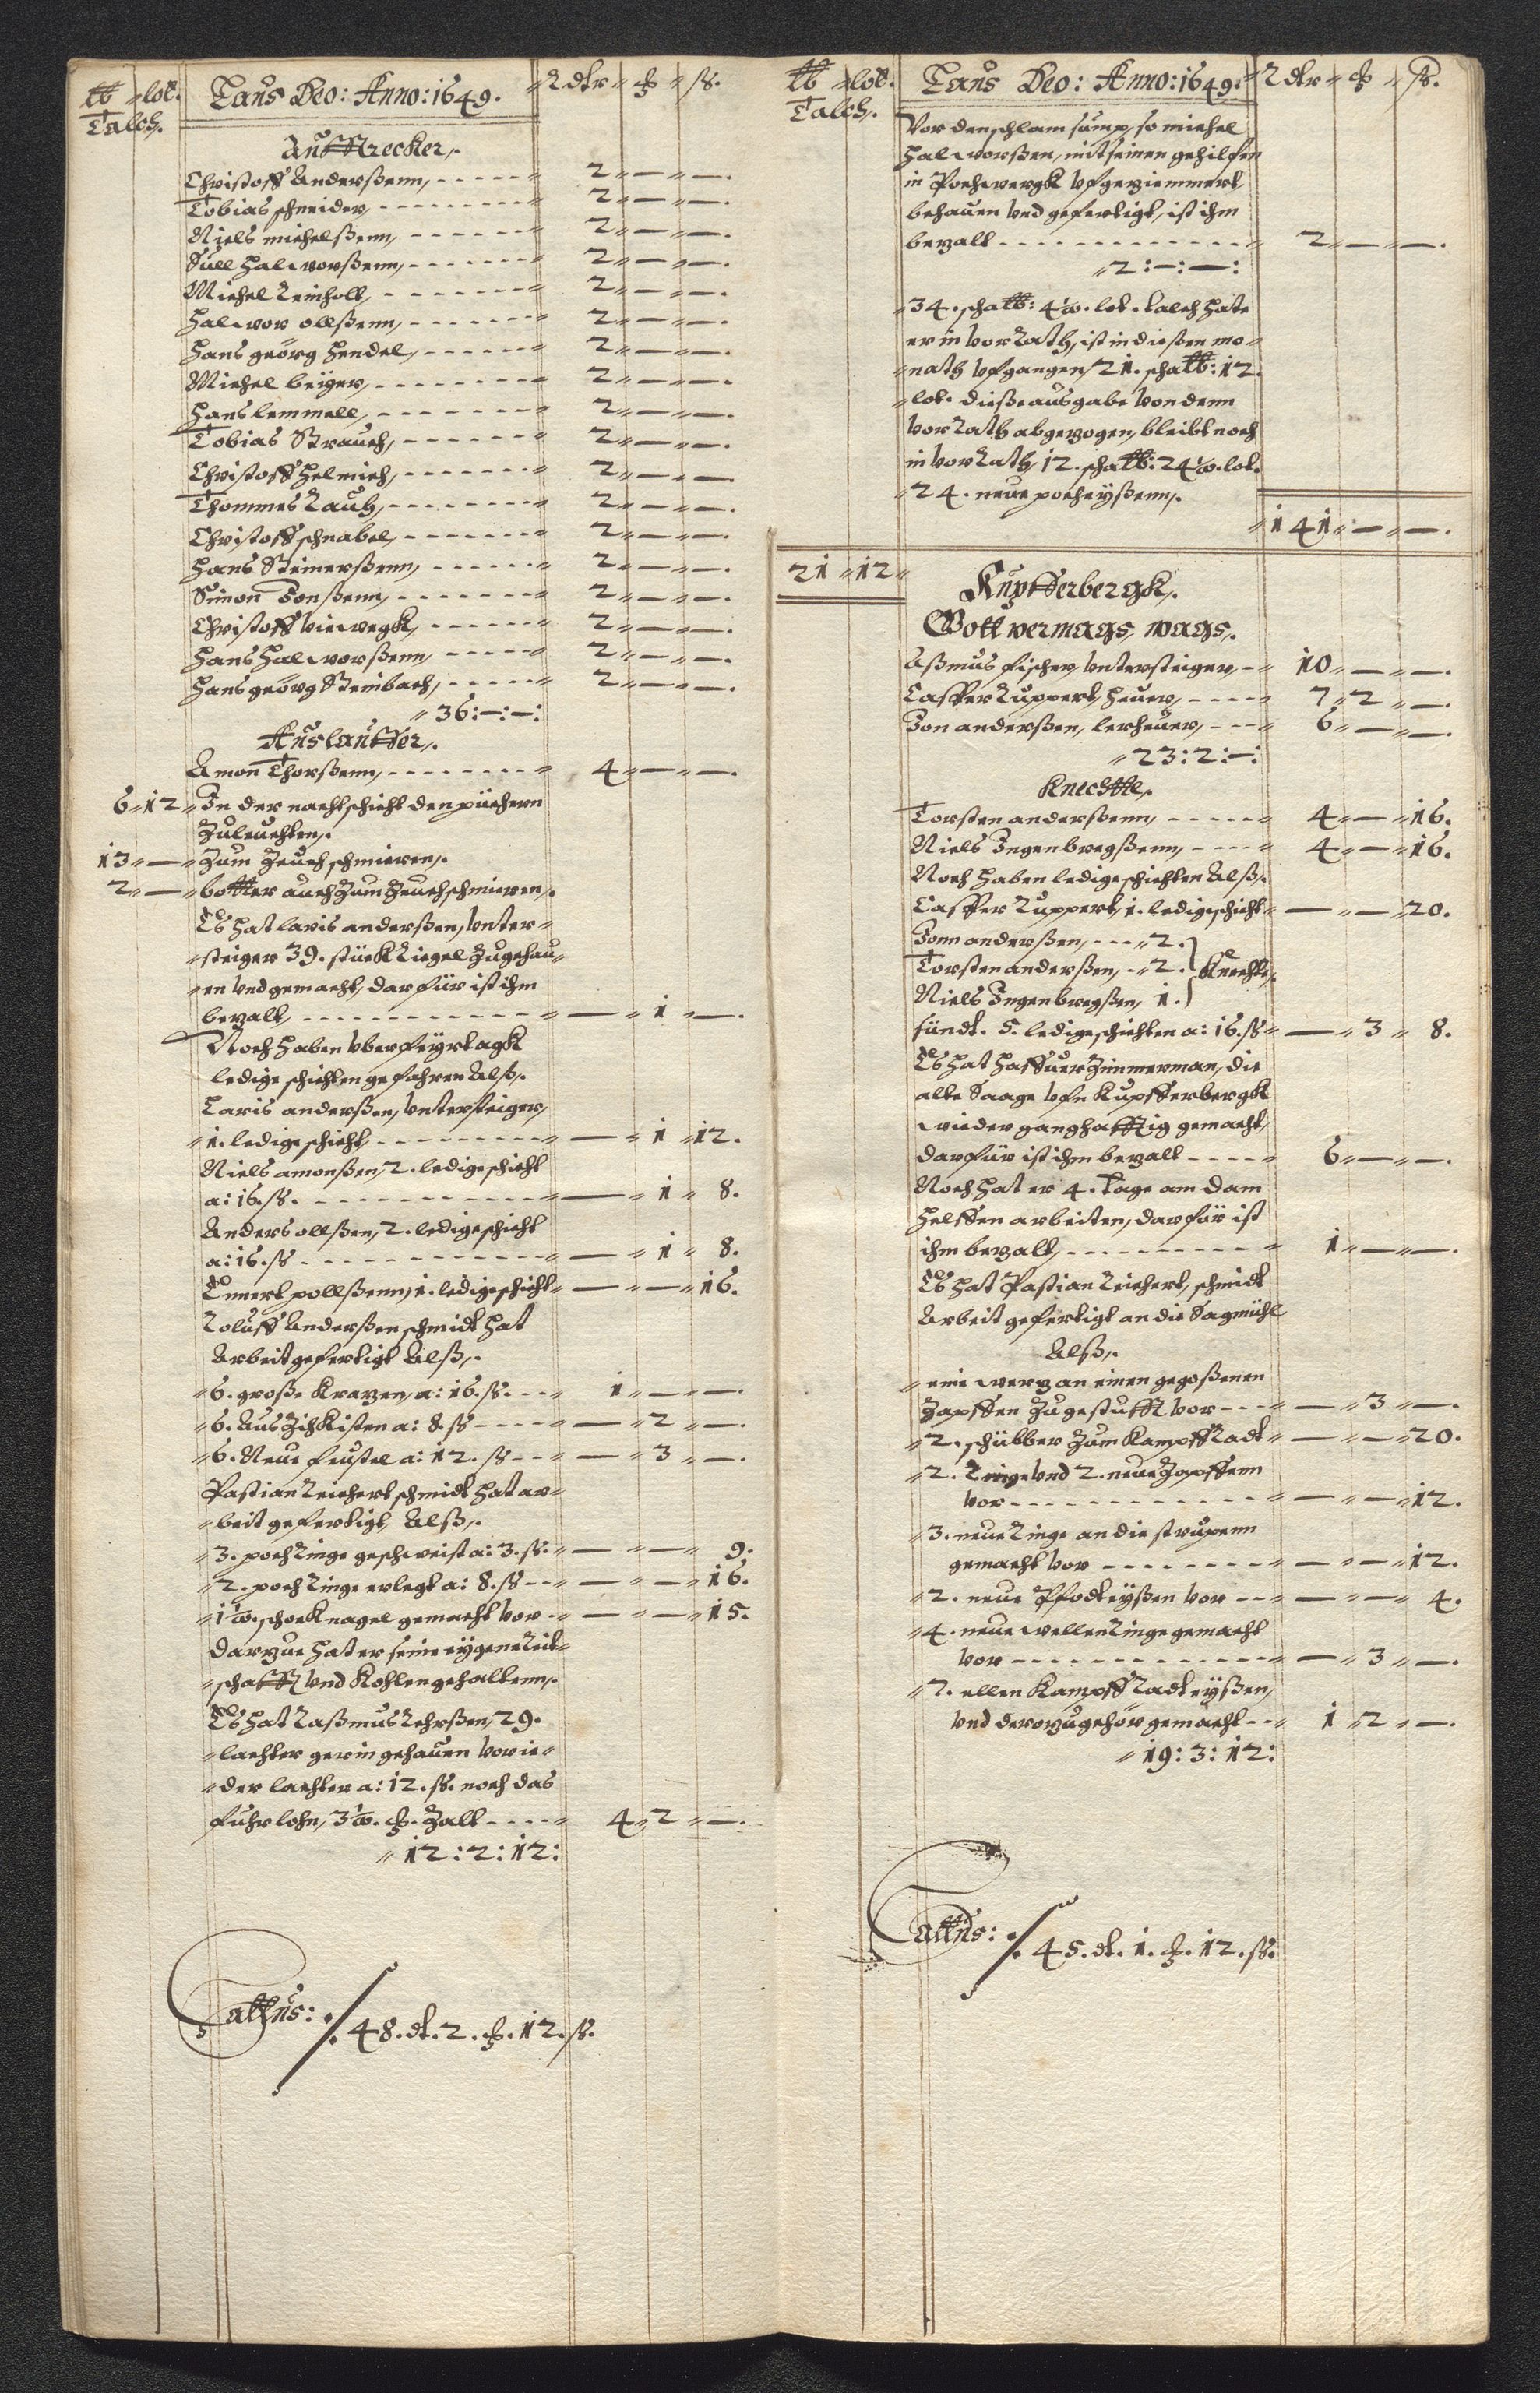 ℔ lot. Laus Deo: Anno: 1649. Rdtr ȶ ß.
Talch.
Auffstrecker,
Christoff Anderßenn, - - - - - 2 — —.
Tobias schneider, - - - - - 2 — —.
Niels michelßenn, - - - - - 2 — —.
Süll Halworßenn, - - - - - 2 — —.
Michel Reinholt, - - - - - 2 — —.
Halwor ollßenn, - - - - - 2 — —.
Hans geörg Hendel, - - - - - 2 — —.
Michel beÿger, - - - - - 2 — —.
Hans lemmell, - - - - - 2 — —.
Tobias Strauch, - - - - - 2 — —.
Christoff Helmich, - - - - - 2 — —.
Thommes Rauh, - - - - - 2 — —.
Christoff schnabel, - - - - - 2 — —.
Hans Steinerßenn, - - - - - 2 — —.
Simon Jonßenn, - - - - - 2 — —.
Christoff viewegk, - - - - - 2 — —.
Hans Halworßenn, - - - - - 2 — —.
Hans geörg Steinbach, - - - - - 2 — —.
36:—:—:
Auslauffer,
Amon Thorßenn, - - - - - 4 — —.
6 12 In der nachtschicht den püchern
Zuleuchten,
13 — Zum Zeuch schmieren,
2 — botter auch Zum Zeuch schmieren,
Es hat lavis anderßen, vnter-
steiger 39. stück Riegel Zugehau-
en vnd gemacht, darfür ist ihm
bezalt, - - - - - — 1 —.
Noch haben vber feÿrtagk
ledige schichten gefahren Alß,
Laris anderßen, vntersteiger,
1. ledige schicht, - - - - - — 1 12.
Niels amonßen, 2. ledige schicht
a: 16. ß. - - - - - — 1 8.
Anders ollßen, 2. ledige schicht
a: 16. ß - - - - - — 1 8.
Einert pollßenn, 1. ledige schicht — — 16.
Roluff Anderßen schmidt hat
Arbeit gefertigt Alß,
6. große Krazen, a: 16. ß. - - - 1 — —.
6. Aus Zihkisten a: 8. ß - - - - — 2 —.
6. Neue feustel a: 12. ß - - - — 3 —.
Pastian Reichert schmidt hat ar-
beit gefertigt, Alß,
3. poch Ringe geschweist a: 3. ß. — — 9.
2. poch Ringe erlegt a: 8. ß - - — — 16.
1½. schock nagel gemacht vor - — — 15.
Darzue hat er seine eÿgene Reit-
schafft vnd Kohlen gehaltenn,
Es hat Raßmus Rehrßen, 29.
lachter gerin gehauen vor ie-
der lachter a: 12. ß. noch das
fuhrlohn, 3½. ȶ. Zalt - - - - 4 2 —.
12: 2: 12:
Lattus: ./. 48. dt. 2. ȶ. 12. ß.
℔ lot. Laus Deo: Anno: 1649. Rdtr ȶ ß.
Talch.
Vor den schlam sump, so michel
Halworßen, mit seinen gehilfen
in Pochwergk vfgeziemmert,
behauen vnd gefertigt, ist ihm
bezalt - - - - - 2 — —.
2:—:—:
34. scha℔: 4½. lot. talch hate
er in vor Rath, ist in dießen mo-
nath vfgangen, 21. scha℔: 12.
lot. dieße ausgabe von denn
vor Rath abgezogen, bleibt noch
in vor Rath, 12. scha℔: 24½. lot.
24. neue pocheÿßenn,
141 — —.
21 12
Kupfferbergk,
Gott vermags, wags,
Aßmus fischer, vntersteiger, - 10 — —.
Casffer Ruppert, heuer, - - - - 7 2 —.
Jon anderßen, lerheuer, - - - 6 — —.
23: 2:—:
Knechtte,
Torsten anderßenn, - - - - - 4 — 16.
Niels Ingenbregßenn, - - - - 4 — 16.
Noch haben ledige schichten Alß,
Casffer Ruppert, 1. ledige schicht — — 20.
Jonn anderßen, - - - 2.
Torsten anderßen, - 2. Knechte,
Niels Ingenbregßen, 1.
sündt. 5. ledige schichten a: 16. ß — 3 8.
Es hat Hassuer Zimmerman, die
alte Saage vfn Kupfferbergk
wieder ganghafftig gemacht,
darfür ist ihm bezalt - - - - 6 — —.
Noch hat er 4. Tage am dam
helffen arbeiten, darfür ist
ihm bezalt, - - - - - 1 — —.
Es hat Pastian Reichert, schmidt
Arbeit gefertigt an die Sagmühl
Alß,
eine werz an einen gegoßenen
Zapffen Zugestufft vor - - - — 3 —.
2. schübber Zum Kampff Radt — — 20.
2. Ringe vnd 2. neue Zapffenn
vor - - - - - — — 12.
3. neue Ringe an die strupenn
gemacht vor - - - - - — — 12.
2. neue Pfodteÿßen vor - - — — 4.
4. neue wellen Ringe gemacht
vor - - - - - — 3 —.
7. ellen Kampff Radt eÿßen,
vnd derozugehör gemacht - - 1 2 —.
19: 3: 12:
Lattus: ./. 45. dt. 1. ȶ. 12. ß.